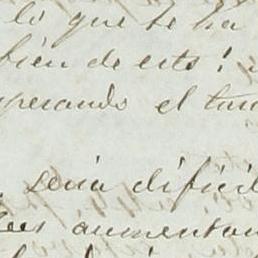 lo que te ha
bien de esto!
sperando el tan
seria dificil
aumentan